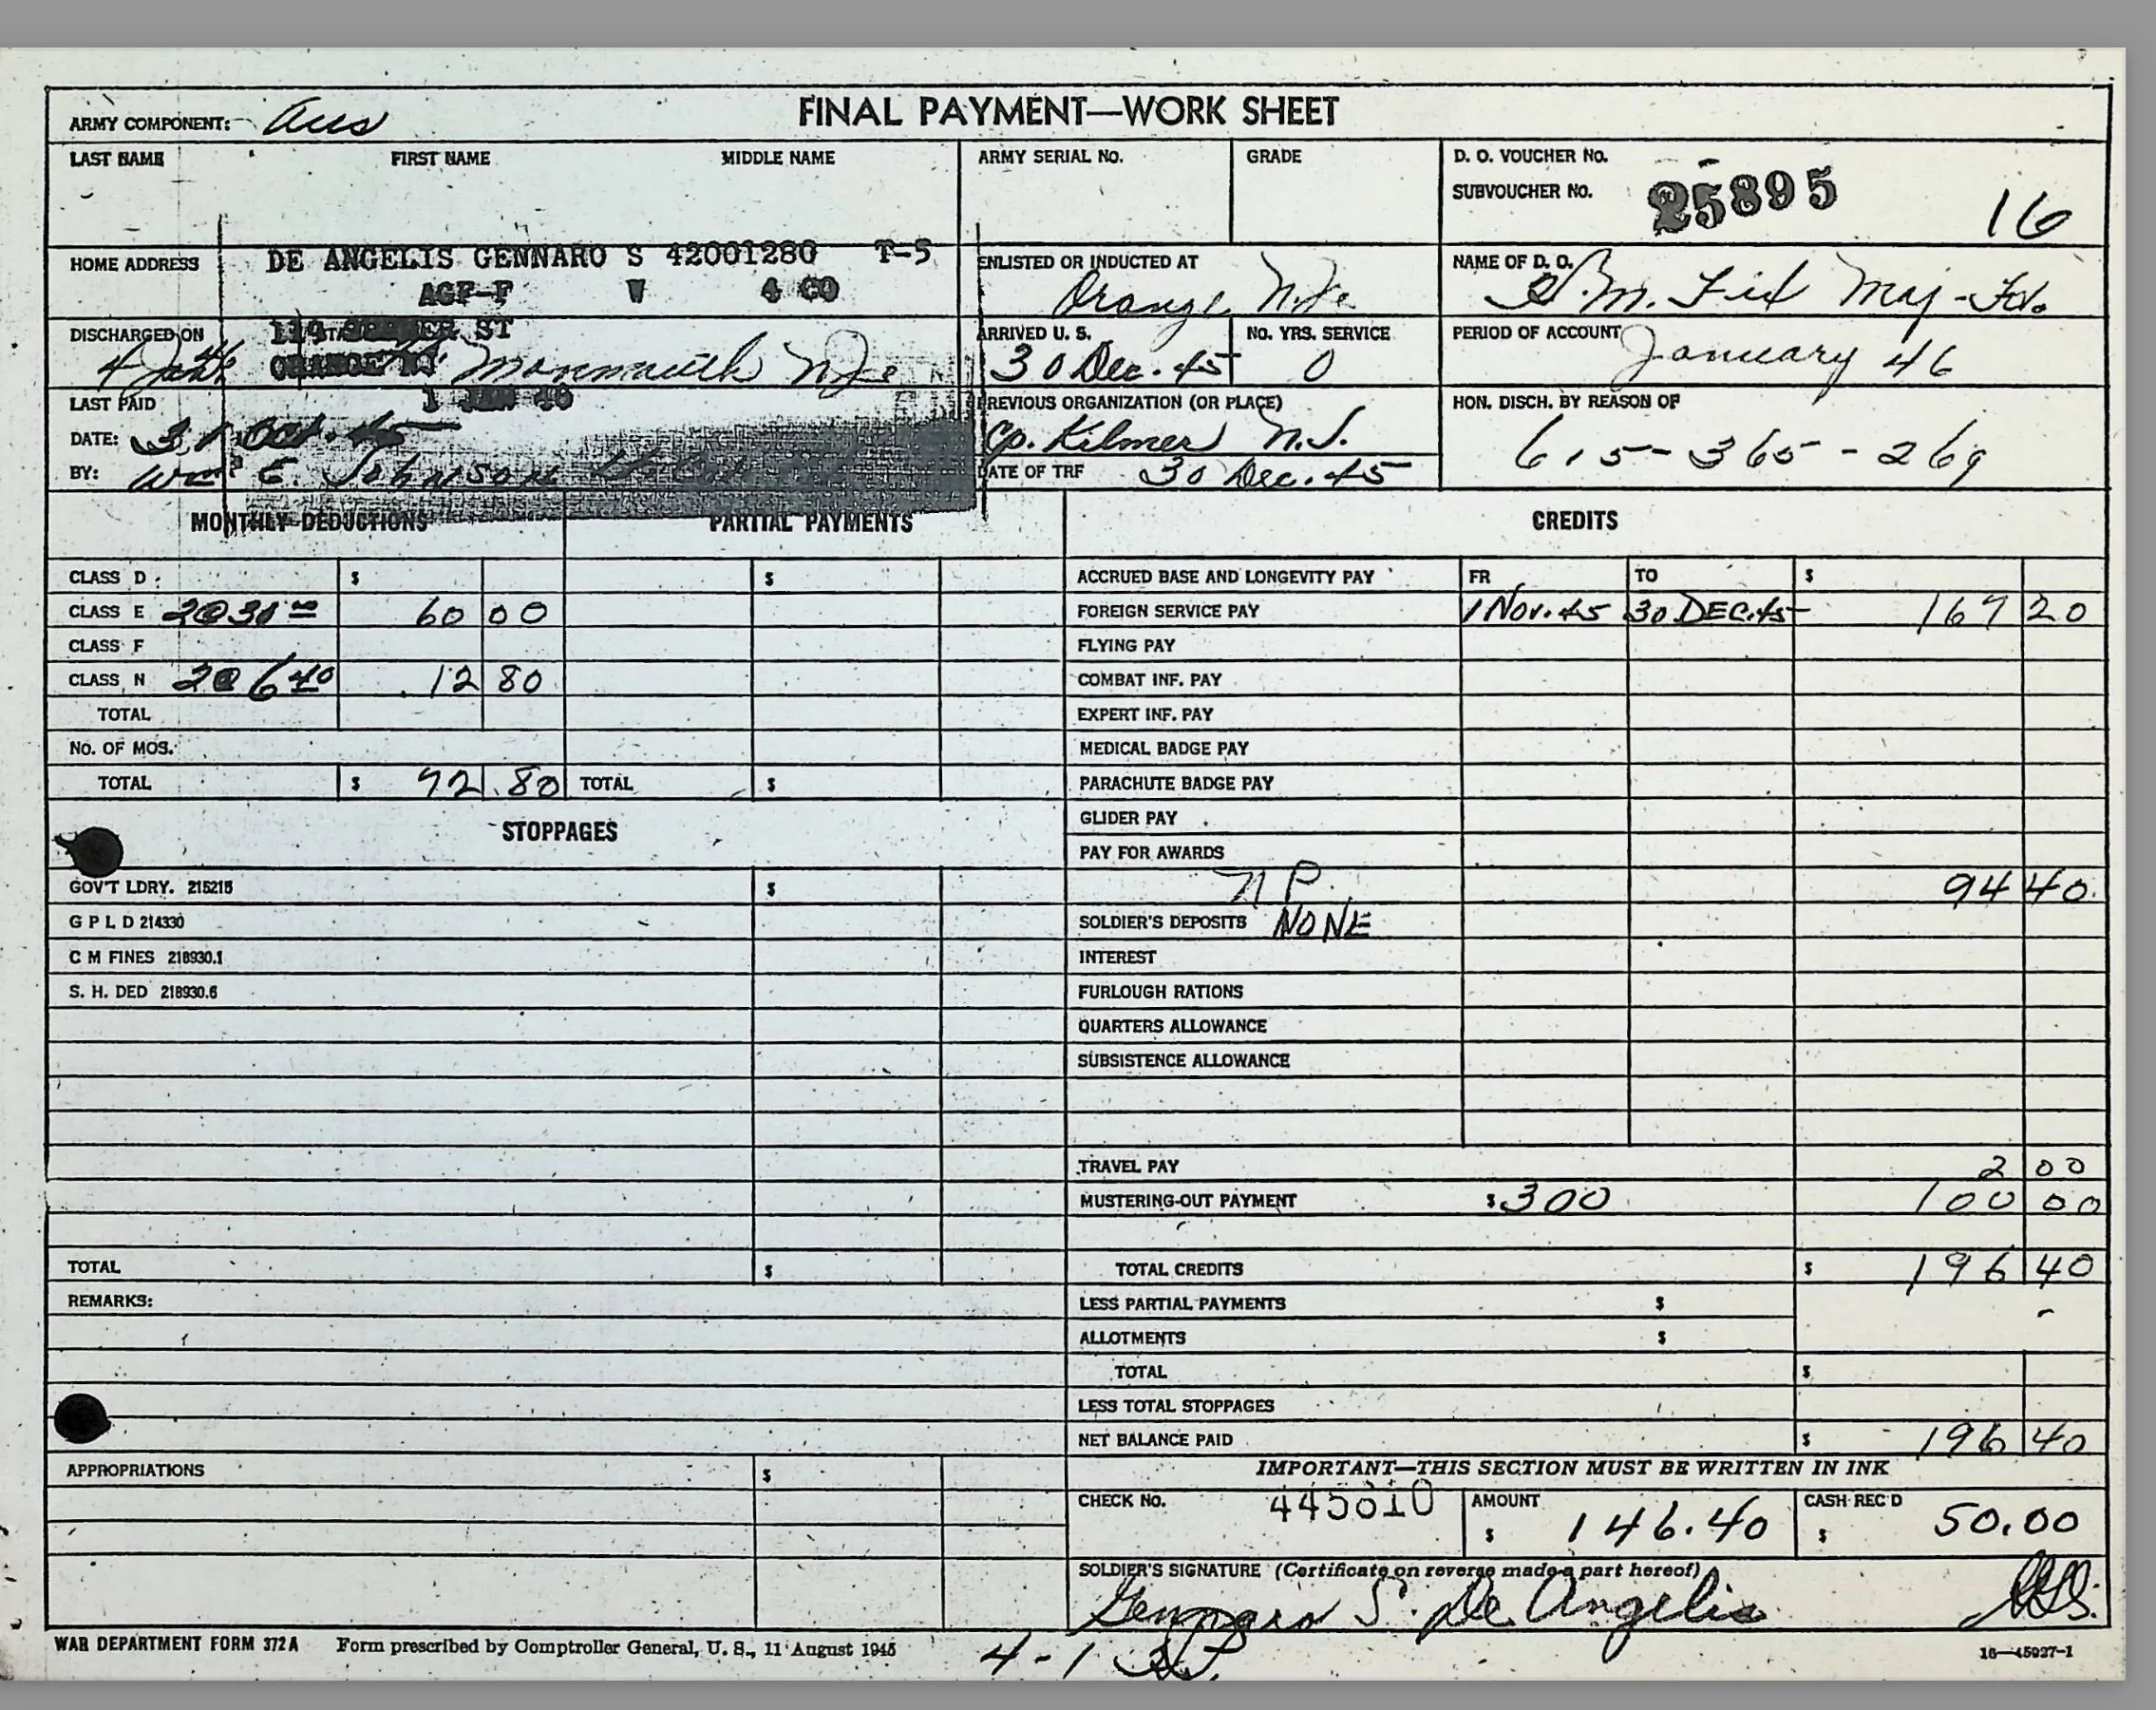 FINAL PAYMENT—WORK SHEET
ARMY COMPONENT: AUS
LAST NAME FIRST NAME MIDDLE NAME ARMY SERIAL NO. GRADE
D. O. VOUCHER NO.
SUBVOUCHER NO. 25895 16
HOME ADDRESS
DE ANGELIS GENNARO S 42001280 T-5
AGF-F W 4 CO
119 ST
ENLISTED OR INDUCTED AT
Orange, N.Je.
NAME OF D. O.
Maj-Fd.
DISCHARGED ON
4 Jan 46
Monmouth N Je
ARRIVED U. S.
30 Dec. 45
NO. YRS. SERVICE
0
PERIOD OF ACCOUNT
January 46
LAST PAID
DATE: 31 Oct. 45
BY: Wm E. Johnson
PREVIOUS ORGANIZATION (OR PLACE)
Cp. Kilmer N.J.
DATE OF TRF 30 Dec. 45
HON. DISCH. BY REASON OF
615-365-269
MONTHLY DEDUCTIONS PARTIAL PAYMENTS
CLASS D $ $
CLASS E 2@30 00 60 00
CLASS F
CLASS N 2@6 40 12 80
TOTAL
NO. OF MOS.
TOTAL $ 72 80 TOTAL $
STOPPAGES
GOV'T LDRY. 215215 $
G P L D 214330
C M FINES 218930.1
S. H. DED 218930.6
TOTAL $
REMARKS:
APPROPRIATIONS $
CREDITS
ACCRUED BASE AND LONGEVITY PAY FR TO $
FOREIGN SERVICE PAY 1 Nov. 45 30 DEC. 45 167 20
FLYING PAY
COMBAT INF. PAY
EXPERT INF. PAY
MEDICAL BADGE PAY
PARACHUTE BADGE PAY
GLIDER PAY
PAY FOR AWARDS
N P. 94 40
SOLDIER'S DEPOSITS NONE
INTEREST
FURLOUGH RATIONS
QUARTERS ALLOWANCE
SUBSISTENCE ALLOWANCE
TRAVEL PAY 2 00
MUSTERING-OUT PAYMENT $300 100 00
TOTAL CREDITS $ 196 40
LESS PARTIAL PAYMENTS $ -
ALLOTMENTS $
TOTAL $
LESS TOTAL STOPPAGES
NET BALANCE PAID $ 196 40
IMPORTANT—THIS SECTION MUST BE WRITTEN IN INK
CHECK NO. 445010 AMOUNT $ 146.40 CASH REC'D $ 50.00
SOLDIER'S SIGNATURE (Certificate on reverse made a part hereof)
Gennaro S. De Angelis
WAR DEPARTMENT FORM 372A Form prescribed by Comptroller General, U. S., 11 August 1945 4-1 16—45927-1